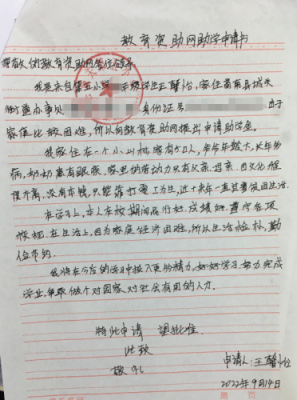 教育资助网助学申请书
尊敬的教育资助网管理领导:
我是来自
小学
级学生王馨怡,家住莒南县城关
街道办事处
身份证号
由于
家庭比较困难,所以向教育资助网提出申请助学金。
我家住在一个小山村,家有5口人,爷爷年龄大,长年多
病,奶奶患有眼疾,家里的劳动力只有父亲
母亲,因文化程
度不高,没有本领,只能靠打零工为生,近十来年一直
生活。
在学习上,本人在校期间品行好,成绩好,遵守各项
校规,在生活上,因为家庭经济困难,所以生活俭朴,勤
俭节约。
我将在今后的学习中投入更多精力,好好学习,努力完成
学业,争取做个对国家对社会有用的人才。
特此申请 望批准
此致
敬礼
申请人:王馨怡
2022年9月14日